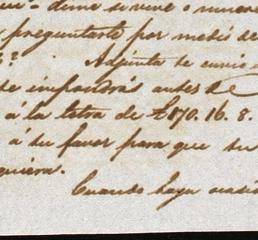 dime si vive o
preguntarte por medio de
? Adjunta te envio
te impondrás antes de
á la letra de £170. 16. 8.
á su favor para que su
quiera.
Cuando haya ocasi